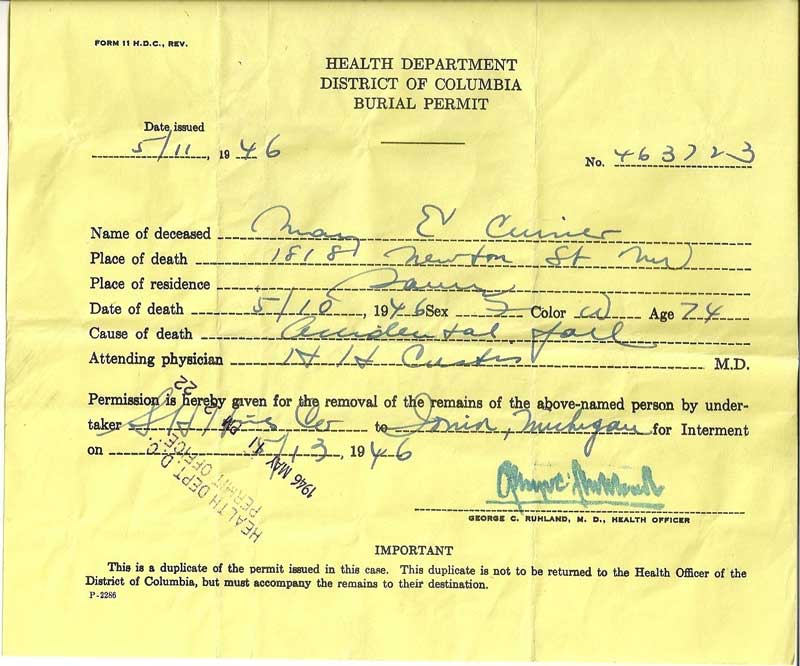 FORM 11 H.D.C., REV.
HEALTH DEPARTMENT
DISTRICT OF COLUMBIA
BURIAL PERMIT
Date issued
5/11, 1946
No. 463723
Name of deceased Mary E Currier
Place of death 1818 Newton St NW
Place of residence Same
Date of death 5/10, 1946 Sex Color W Age 74
Cause of death Accidental fall
Attending physician H H Custis M.D.
Permission is hereby given for the removal of the remains of the above-named person by under-
taker S H Hines Co to Ionia, Michigan for Interment
on 5/13, 1946
HEALTH DEPT. D. C.
PERMIT OFFICE
1946 MAY 11 PM 2 22
GEORGE C. RUHLAND, M. D., HEALTH OFFICER
IMPORTANT
This is a duplicate of the permit issued in this case. This duplicate is not to be returned to the Health Officer of the
District of Columbia, but must accompany the remains to their destination.
P-2286